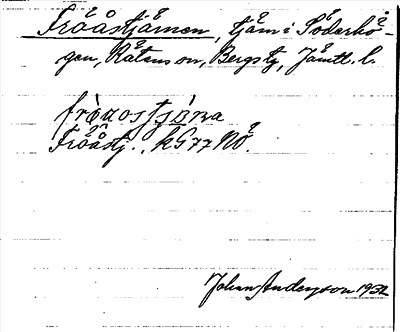 Fröåstjärnen, tjärn i Söderhö-
gen, Rätans sn, Bergs tg, Jämtl. l.
Fröåstj., kG77 NÖ.
Johan Anderson 1932